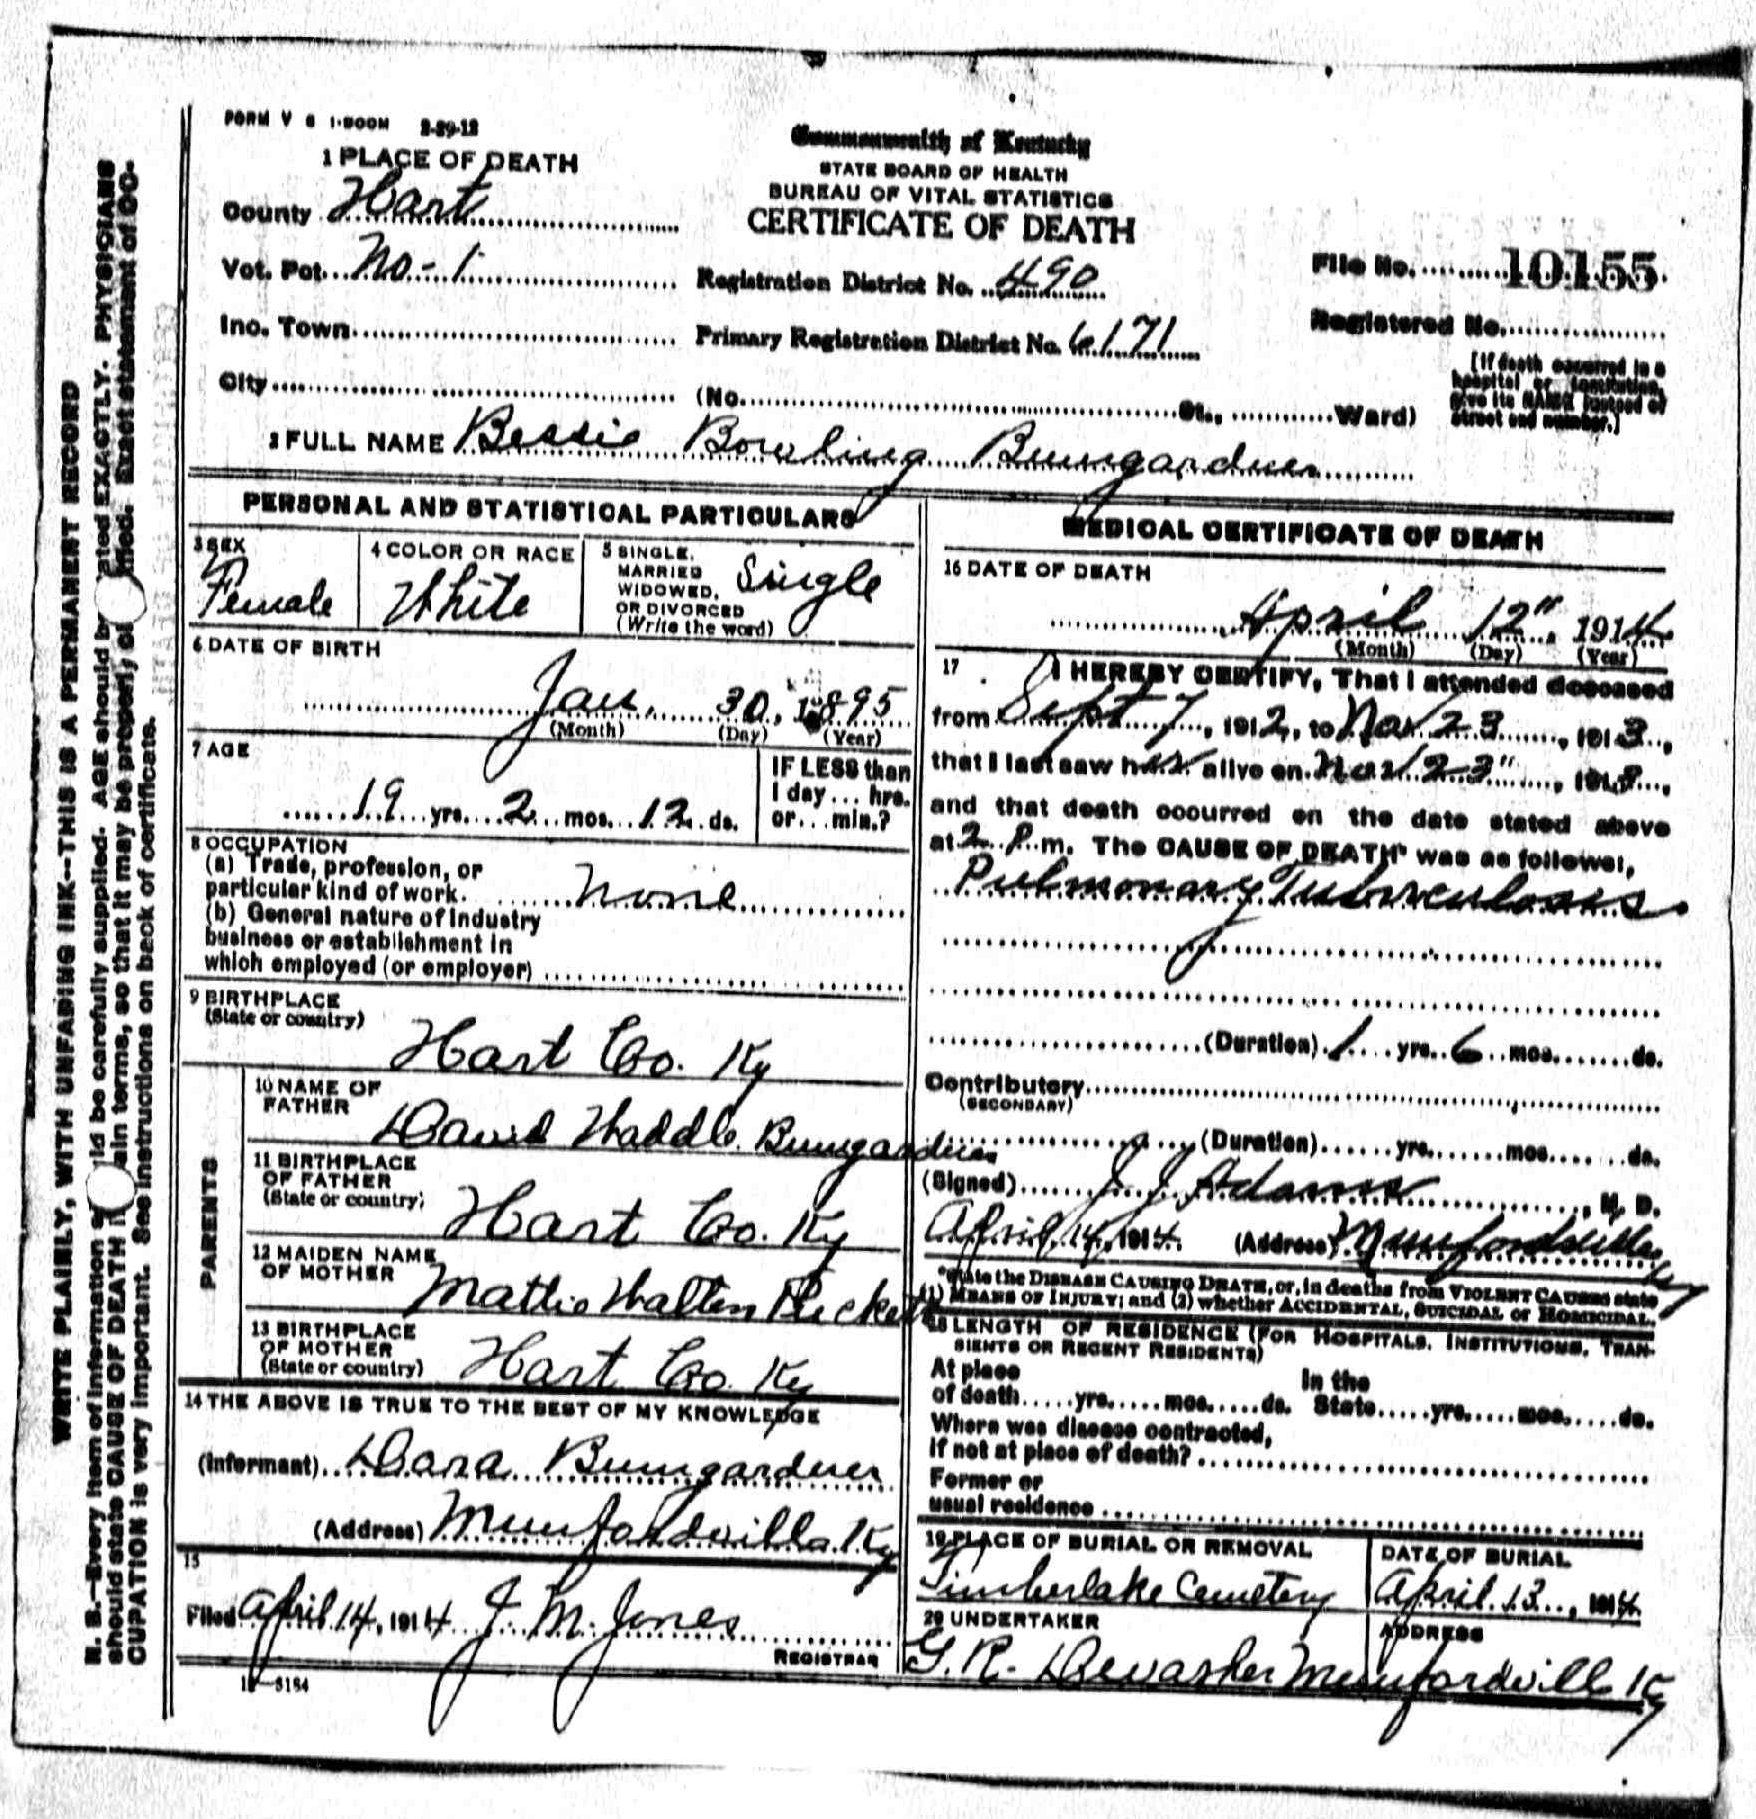 FORM V S 1-500M 2-29-12
Commonwealth of Kentucky
STATE BOARD OF HEALTH
BUREAU OF VITAL STATISTICS
CERTIFICATE OF DEATH
1 PLACE OF DEATH
County Hart
Vot. Pct. No-1
Inc. Town
City
Registration District No. 490
Primary Registration District No. 6171
(No. St., Ward)
File No. 10155
Registered No.
[If death occurred in a
hospital or institution,
give its NAME instead of
street and number.]
2 FULL NAME Bessie Bowling Bumgardner
PERSONAL AND STATISTICAL PARTICULARS
3 SEX
Female
4 COLOR OR RACE
White
5 SINGLE,
MARRIED
WIDOWED,
OR DIVORCED
(Write the word)
Single
6 DATE OF BIRTH
Jan. 30, 1895
(Month) (Day) (Year)
7 AGE
19 yrs. 2 mos. 12 ds.
IF LESS than
1 day... hrs.
or... min.?
8 OCCUPATION
(a) Trade, profession, or
particular kind of work. None
(b) General nature of Industry
business or establishment in
which employed (or employer)
9 BIRTHPLACE
(State or country)
Hart Co. Ky
PARENTS
10 NAME OF
FATHER
David Waddle Bumgardner
11 BIRTHPLACE
OF FATHER
(State or country)
Hart Co. Ky
12 MAIDEN NAME
OF MOTHER
Mattie Walten Puckett
13 BIRTHPLACE
OF MOTHER
(State or country)
Hart Co. Ky
14 THE ABOVE IS TRUE TO THE BEST OF MY KNOWLEDGE
(Informant) Dara Bumgardner
(Address) Munfordville Ky
15
Filed April 14, 1914 J. M. Jones
REGISTRAR
11-3184
MEDICAL CERTIFICATE OF DEATH
16 DATE OF DEATH
April 12", 1914
(Month) (Day) (Year)
17 I HEREBY CERTIFY, That I attended deceased
from Sept 7, 1912, to Mar 23, 1913,
that I last saw her alive on Mar 23", 1913,
and that death occurred on the date stated above
at 2 P. m. The CAUSE OF DEATH* was as follows:
Pulmonary Tuberculosis
(Duration) 1 yrs. 6 mos. ds.
Contributory
(SECONDARY)
(Duration) yrs. mos. ds.
(Signed) J. J. Adams, M. D.
April 14, 1914. (Address) Munfordville Ky
*State the DISEASE CAUSING DEATH, or, in deaths from VIOLENT CAUSES state
(1) MEANS OF INJURY; and (2) whether ACCIDENTAL, SUICIDAL or HOMICIDAL.
18 LENGTH OF RESIDENCE (FOR HOSPITALS, INSTITUTIONS, TRAN-
SIENTS OR RECENT RESIDENTS)
At place In the
of death yrs. mos. ds. State yrs. mos. ds.
Where was disease contracted,
if not at place of death?
Former or
usual residence
19 PLACE OF BURIAL OR REMOVAL
Timberlake Cemetery
DATE OF BURIAL
April 13, 1914
20 UNDERTAKER
G. R. Dewasher
ADDRESS
Munfordville Ky
WRITE PLAINLY, WITH UNFADING INK--THIS IS A PERMANENT RECORD
N. B.--Every item of information should be carefully supplied. AGE should be stated EXACTLY. PHYSICIANS
should state CAUSE OF DEATH in plain terms, so that it may be properly classified. Exact statement of OC-
CUPATION is very important. See instructions on back of certificate.